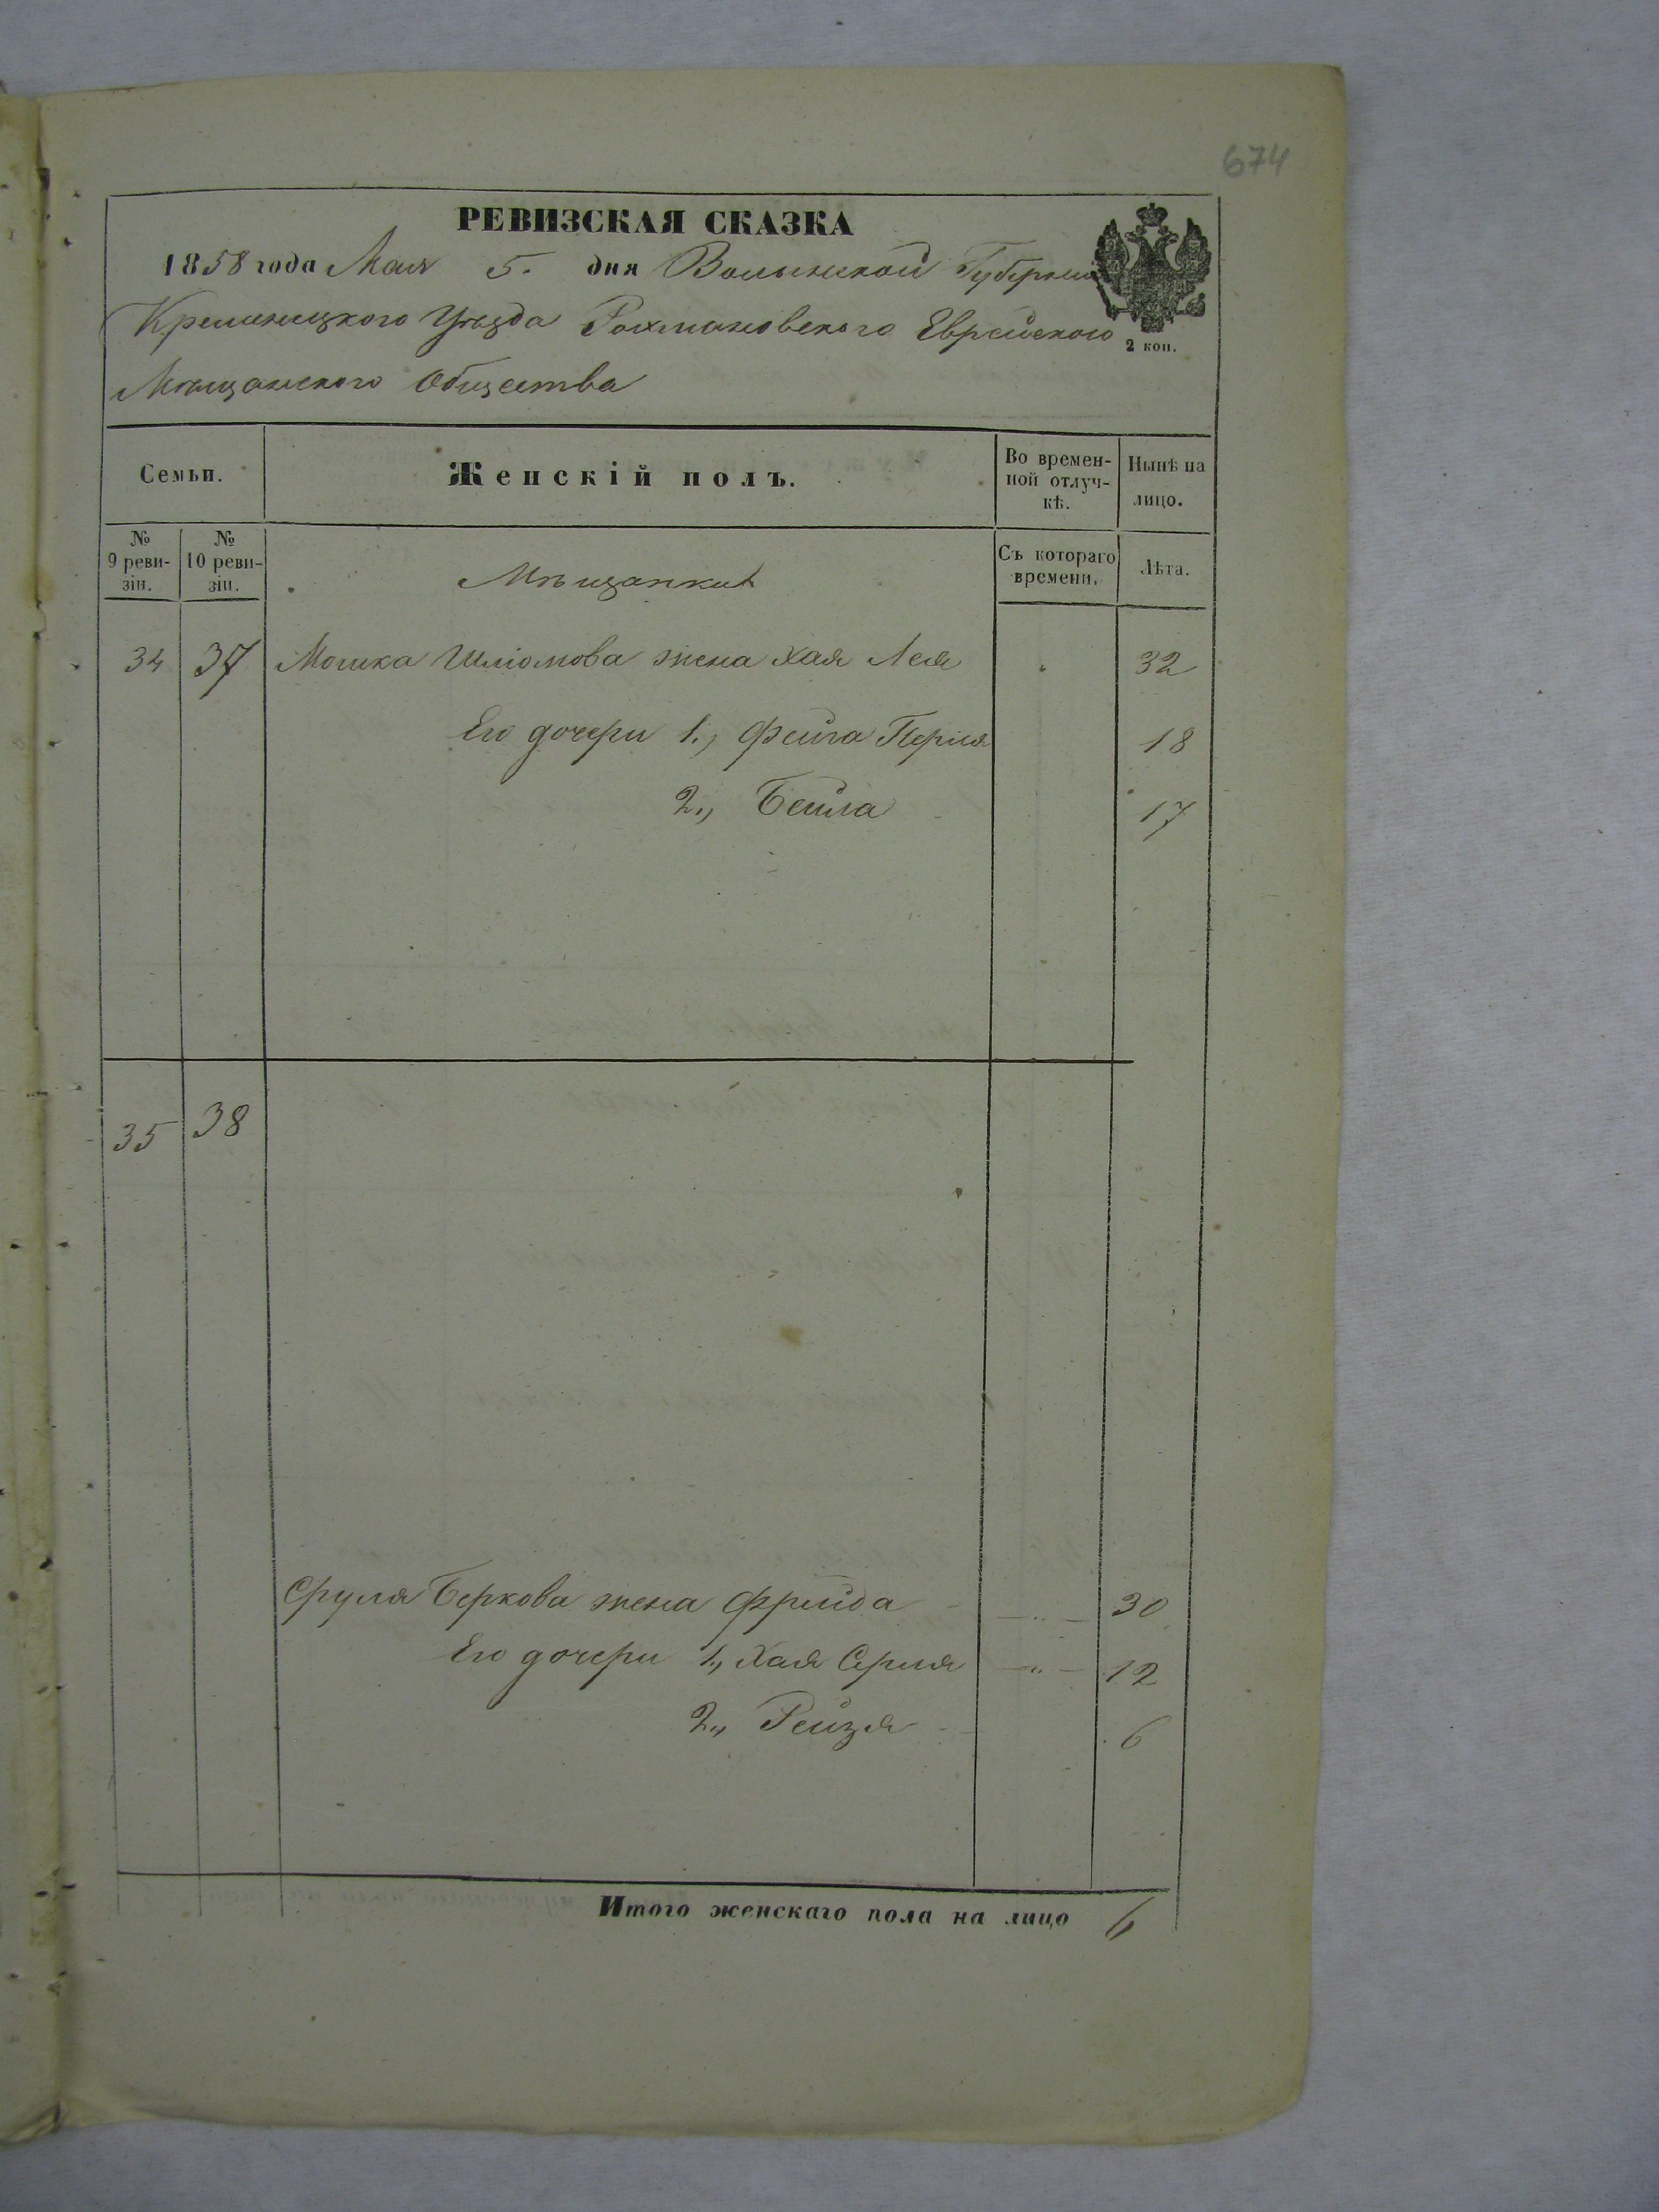 674
РЕВИЗСКАЯ СКАЗКА
1858 года Мая 5. дня Волынской Губерніи
Кременецкого Уѣзда Рохмановского Еврейского
2 коп.
Мѣщанского Общества
Семьи.
Женскій полъ.
Во времен-
ной отлуч-
кѣ.
Нынѣ на
лицо.
№
9 реви-
зіи.
№
10 реви-
зіи.
Мѣщанки
Съ котораго
времени.
Лѣта.
34 37 Мошка Шліомова жена Хая Лея 32
Его дочери 1., Фейга Перля 18
2., Бейла 17
35 38
Сруля Беркова жена Фрейда — „ — 30
Его дочери 1., Хая Серля — „ — 12
2., Рейзя 6
Итого женскаго пола на лицо 6